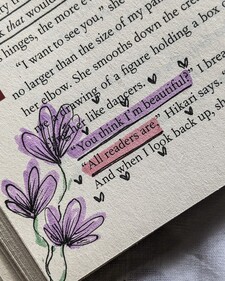 that would
hinges, the more
"I want to see you," she
no larger than the size of my pa
her elbow. She smooths down the cre
drawing of a figure holding a box
her like dancers.
"You think I'm beautiful?" I brea
"All readers are," Hikari says.
And when I look back up, sh